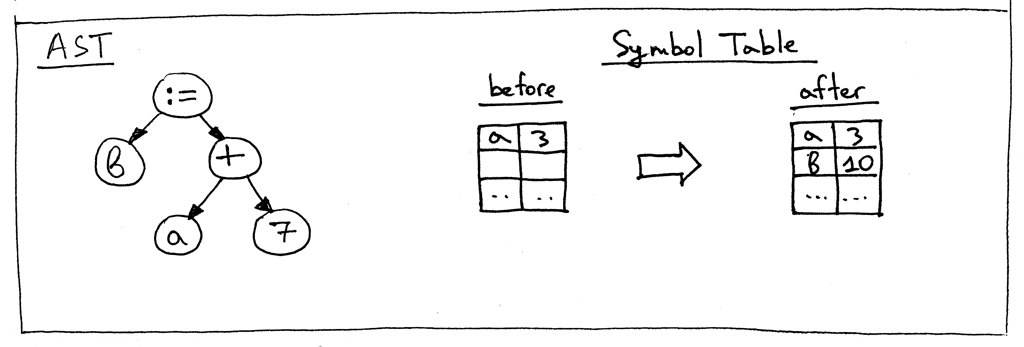 AST
Symbol Table
:=
B
+
a
7
before
a 3
.. ..
after
a 3
B 10
... ...